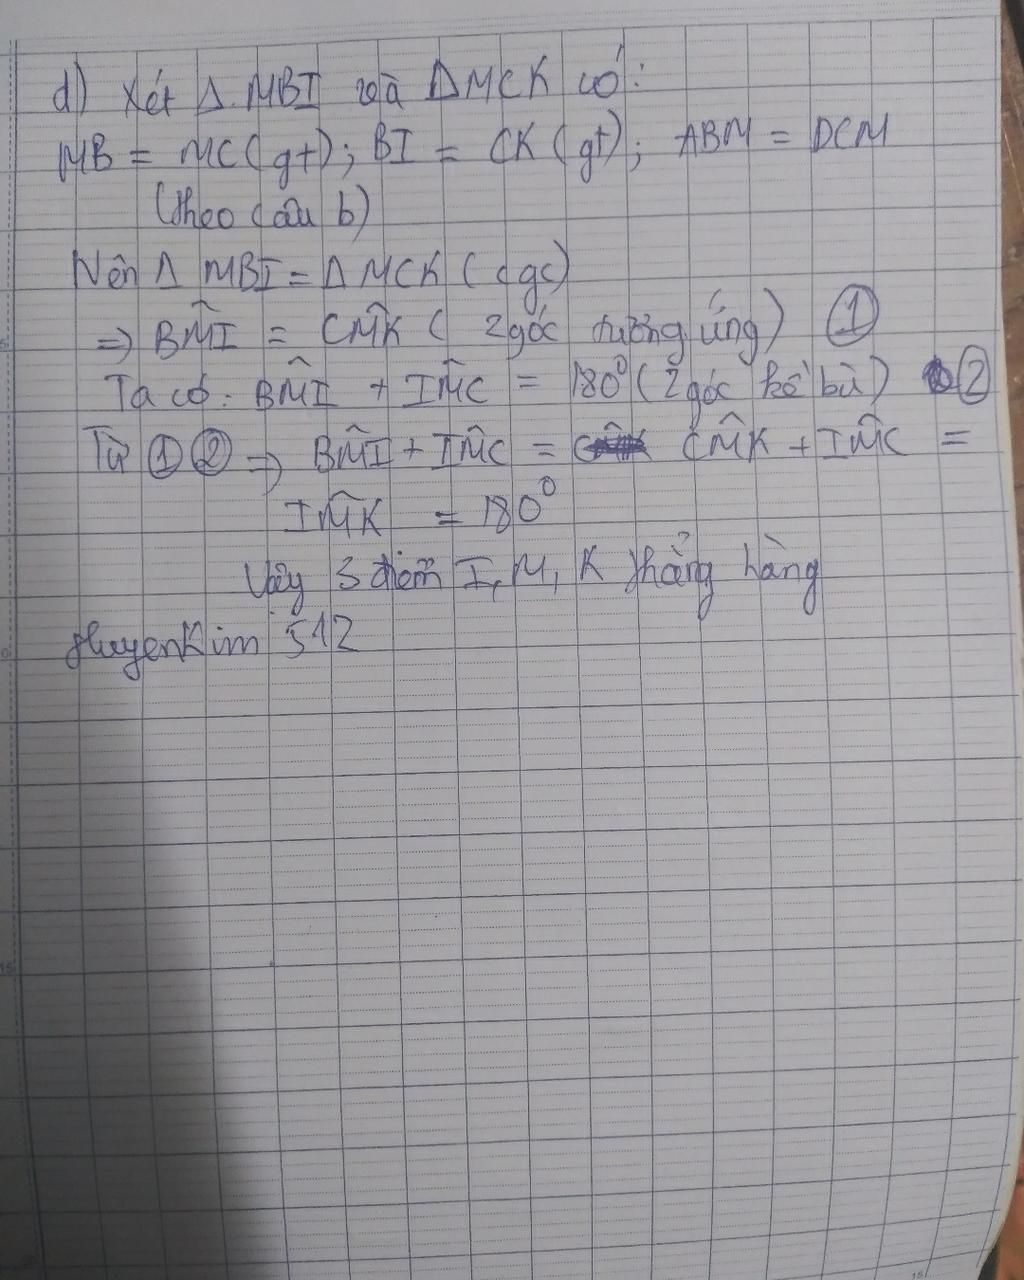 d) Xét Δ MBI và ΔMCK có:
MB = MC (gt); BI = CK (gt); ABM = DCM
(theo câu b)
Nên Δ MBI = Δ MCK (cgc)
=> BM̂I = CM̂K ( 2 góc tương ứng) ①
Ta có: BM̂I + IM̂C = 180⁰ (2 góc kề bù) ②
Từ ① ② => BM̂I + IM̂C = CM̂K + IM̂C =
IM̂K = 180⁰
Vậy 3 điểm I, M, K thẳng hàng
thuyenKim 512